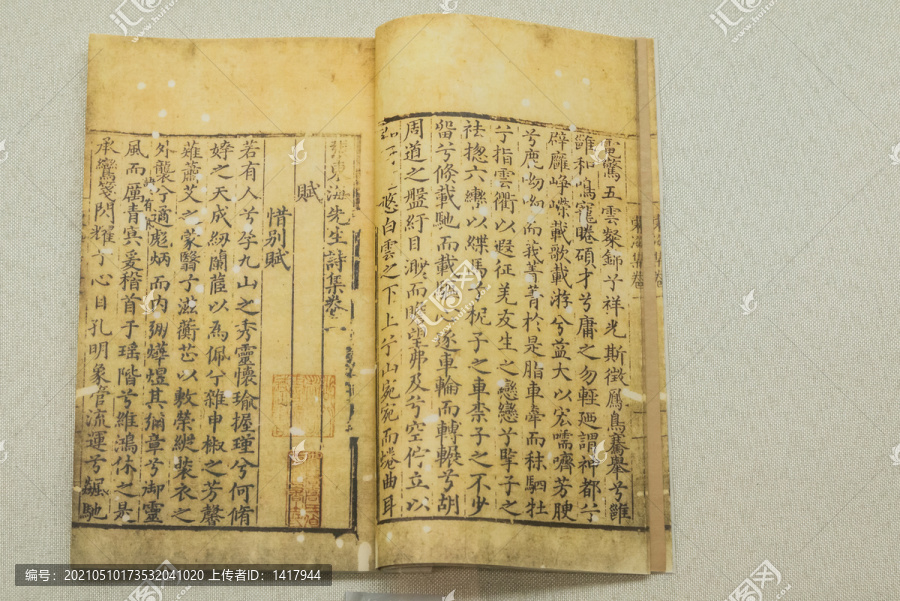 驚五雲粲兮祥光斯徵鳥騫舉兮雝
雝和鳴寵睠碩才兮庸之勿輕廼謂神都兮
辟廱崢嶸載歌載游兮葢大以宏嚅嚌芳腴
兮鹿呦呦而莪菁菁於是脂車牽而秣駟牡
兮指雲衢以遐征羌友生之戀戀兮摯子之
祛摠六轡以緤馬兮柅子之車柰子之不少
留兮倏載馳而載驅之逐車輪而轉轆兮胡
周道之盤紆目渺而瞻望弗及兮空佇立以
悠白雲之下上兮山宛宛而墝曲耳
張東海先生詩集卷一
賦
惜別賦
若有人兮孕九山之秀靈懷瑜握瑾兮何脩
婞之天成紉蘭茝以為佩兮雜申椒之芳馨
薙蕭艾之蒙翳兮滋蘅芷以敷榮縱裝衣之
外襲兮適彪炳而內弸燁煜其彌章兮御靈
風而厲青冥爰稽首于瑤階兮維鴻休之是
承鸞箋閃耀兮心日孔明象管流運兮飆馳
編号：20210510173532041020 上传者ID：1417944
汇图网